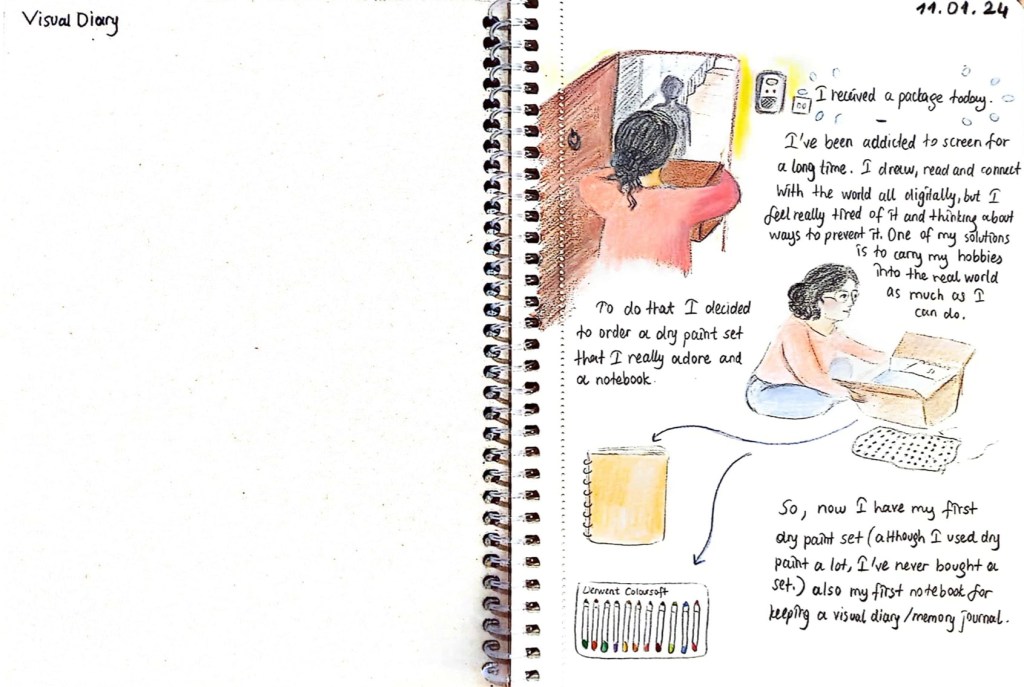 Visual Diary
11.01.24
I received a package today.
I've been addicted to screen for
a long time. I draw, read and connect
with the world all digitally, but I
feel really tired of it and thinking about
ways to prevent it. One of my solutions
is to carry my hobbies
into the real world
as much as I
can do.
To do that I decided
to order a dry paint set
that I really adore and
a notebook.
So, now I have my first
dry paint set (although I used dry
paint a lot, I've never bought a
set.) also my first notebook for
keeping a visual diary/memory journal.
Derwent Coloursoft